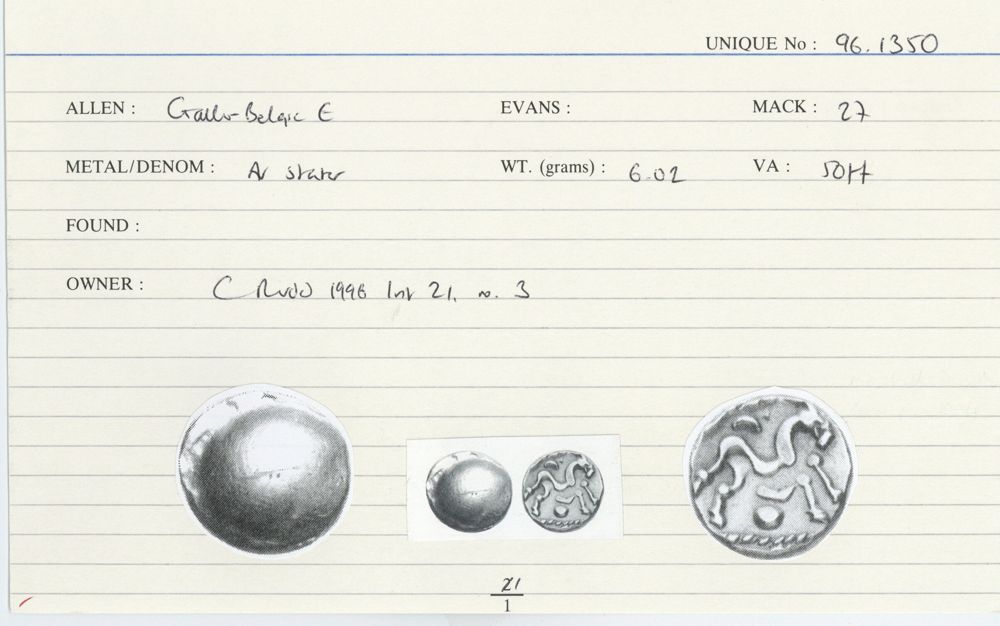 UNIQUE No : 96.1350
ALLEN : Gallo-Belgic E EVANS : MACK : 27
METAL/DENOM : AV stater WT. (grams) : 6.02 VA :
FOUND :
OWNER : C Rudd 1996 list 21, no. 3
21
1